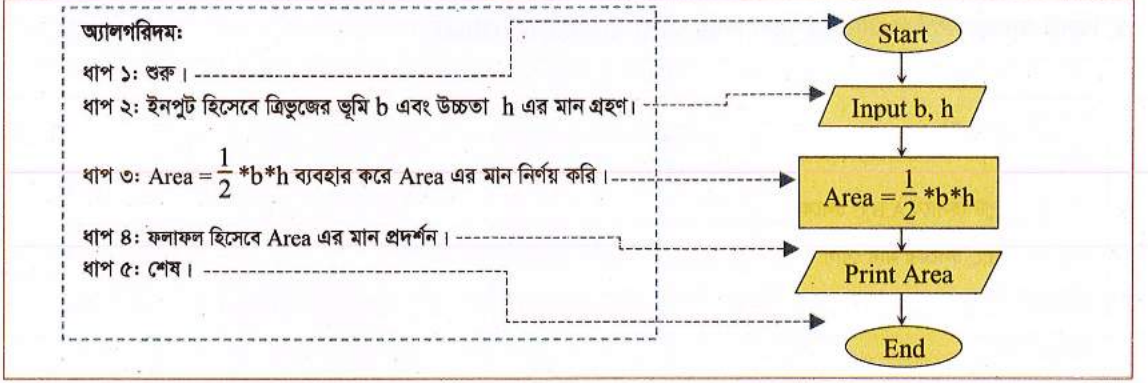 অ্যালগরিদম:
ধাপ ১: শুরু।
ধাপ ২: ইনপুট হিসেবে ত্রিভুজের ভূমি b এবং উচ্চতা h এর মান গ্রহণ।
ধাপ ৩: Area = 1/2 *b*h ব্যবহার করে Area এর মান নির্ণয় করি।
ধাপ ৪: ফলাফল হিসেবে Area এর মান প্রদর্শন।
ধাপ ৫: শেষ।
Start
Input b, h
Area = 1/2 *b*h
Print Area
End